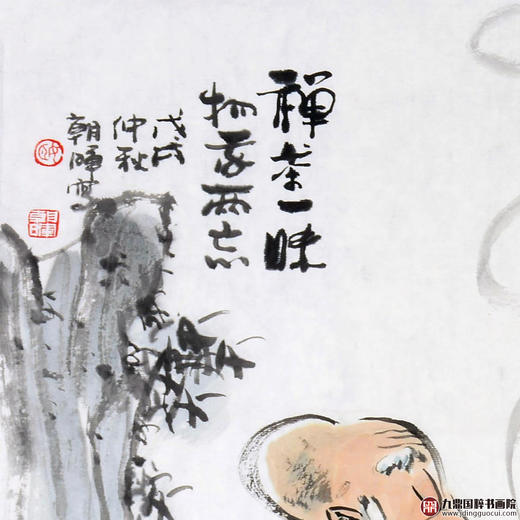 禅茶一味
物我两忘
戊戌
仲秋
朝晖写
九鼎国辞书画院
www.jdingguocui.com